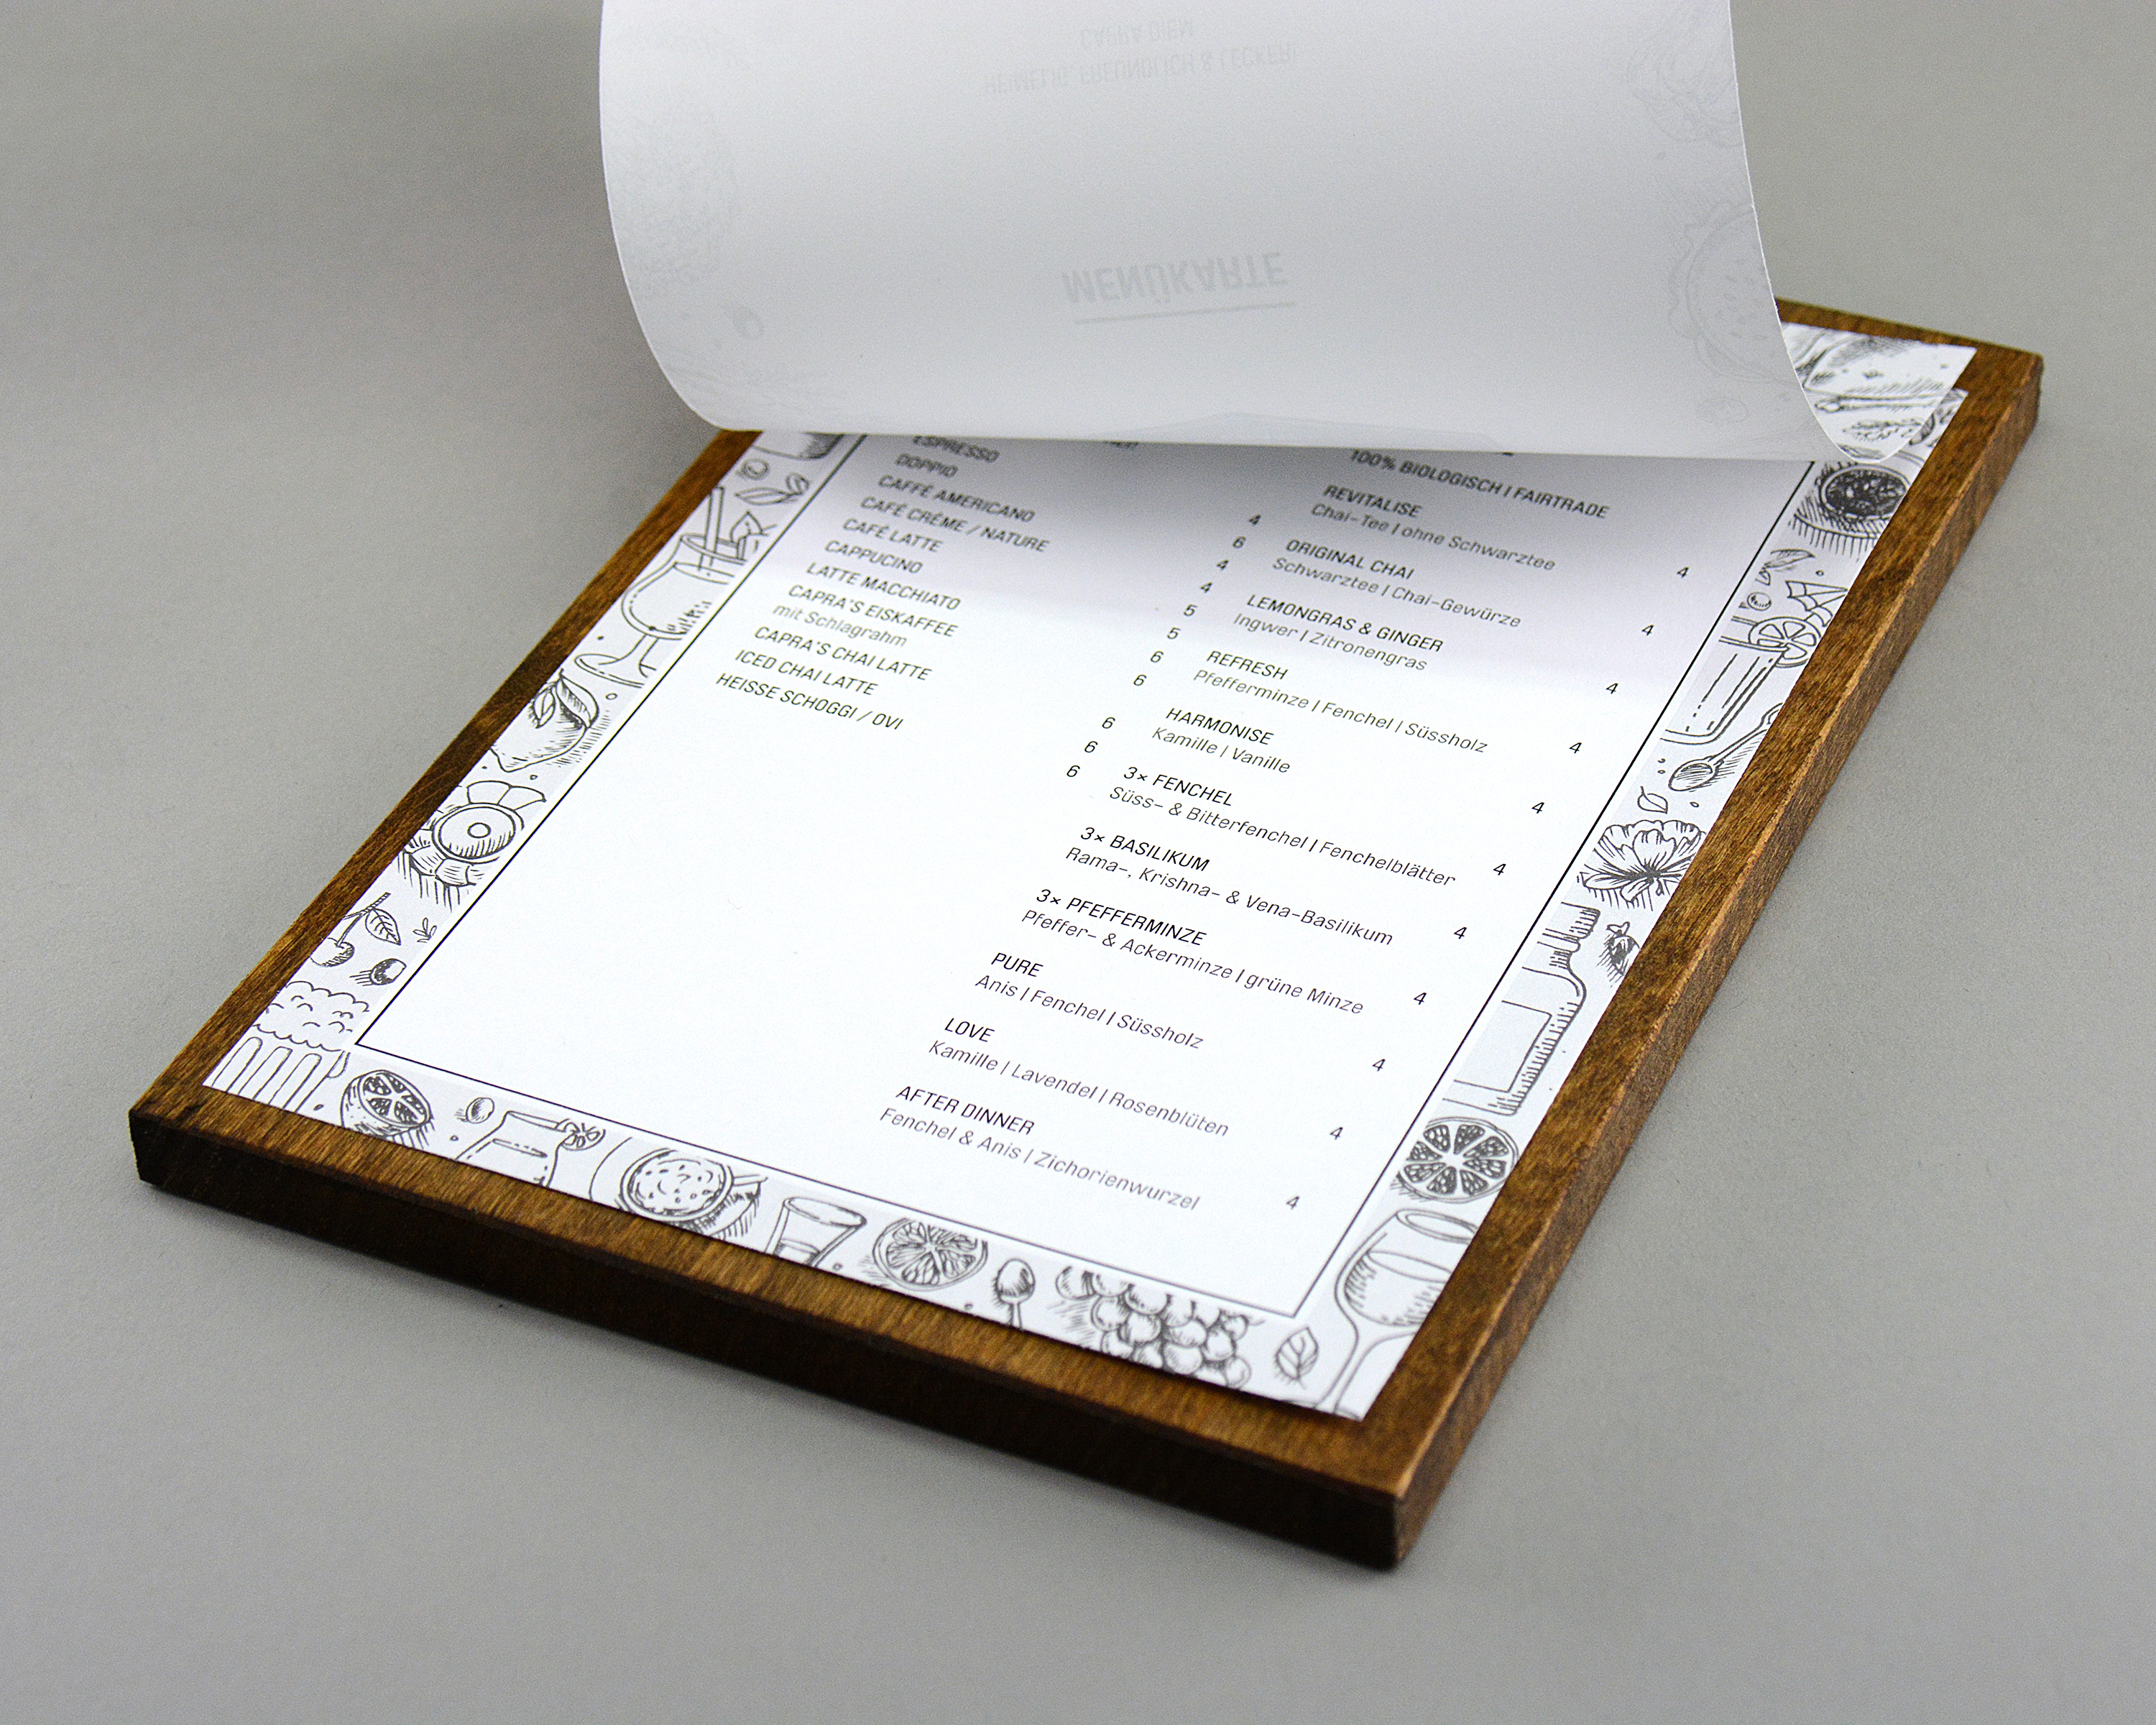 CAPRA DIEM
HEIMELIG, FREUNDLICH & LECKER!
MENÜKARTE
ESPRESSO 4
DOPPIO 6
CAFFÉ AMERICANO 4
CAFÉ CRÈME / NATURE 4
CAFÉ LATTE 5
CAPPUCINO 5
LATTE MACCHIATO 6
CAPRA'S EISKAFFEE 6
mit Schlagrahm
CAPRA'S CHAI LATTE 6
ICED CHAI LATTE 6
HEISSE SCHOGGI / OVI 6
100% BIOLOGISCH | FAIRTRADE
REVITALISE 4
Chai-Tee | ohne Schwarztee
ORIGINAL CHAI 4
Schwarztee | Chai-Gewürze
LEMONGRAS & GINGER 4
Ingwer | Zitronengras
REFRESH 4
Pfefferminze | Fenchel | Süssholz
HARMONISE 4
Kamille | Vanille
3× FENCHEL 4
Süss- & Bitterfenchel | Fenchelblätter
3× BASILIKUM 4
Rama-, Krishna- & Vena-Basilikum
3× PFEFFERMINZE 4
Pfeffer- & Ackerminze | grüne Minze
PURE 4
Anis | Fenchel | Süssholz
LOVE 4
Kamille | Lavendel | Rosenblüten
AFTER DINNER 4
Fenchel & Anis | Zichorienwurzel